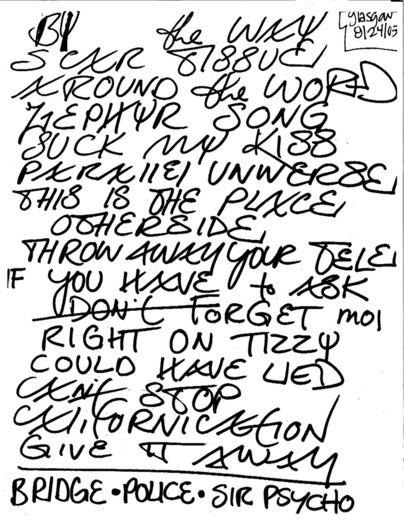 Glasgow
8/24/03
BY the WAY
SCAR TISSUE
AROUND the WORD
ZEPHYR SONG
SUCK MY KISS
PARALLEL UNIVERSE
THIS IS THE PLACE
OTHERSIDE
THROW AWAY YOUR TELE
IF YOU HAVE to ASK
DON'T FORGET MOI
RIGHT ON TIZZY
COULD HAVE LIED
CAN'T STOP
CALIFORNICATION
GIVE IT AWAY
BRIDGE • POLICE • SIR PSYCHO